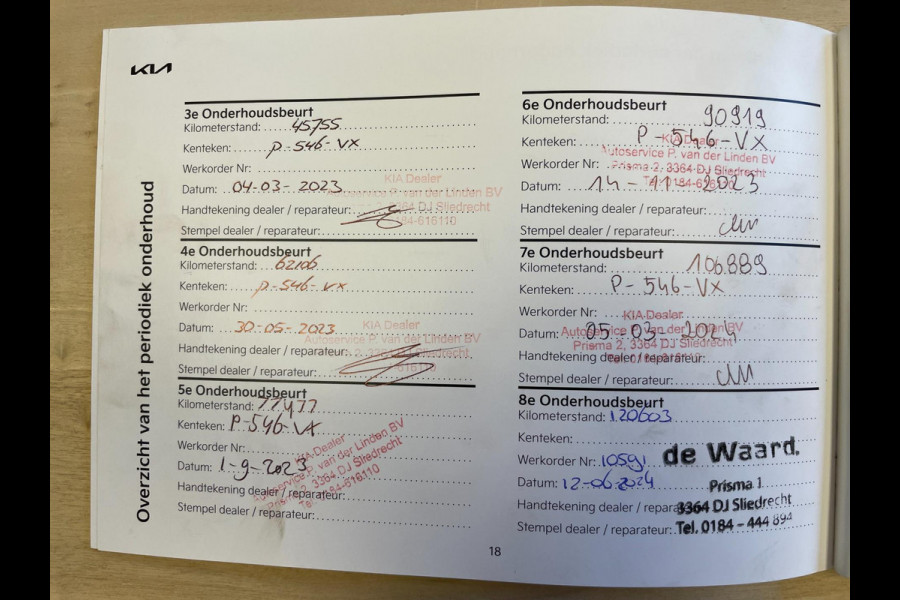 KIA
Overzicht van het periodiek onderhoud
3e Onderhoudsbeurt
Kilometerstand: 45755
Kenteken: P-546-VX
Werkorder Nr:
Datum: 04-03-2023
Handtekening dealer / reparateur:
Stempel dealer / reparateur:
KIA Dealer
Autoservice P. van der Linden BV
3364 DJ Sliedrecht
0184-616110
4e Onderhoudsbeurt
Kilometerstand: 62106
Kenteken: P-546-VX
Werkorder Nr:
Datum: 30-05-2023
Handtekening dealer / reparateur:
Stempel dealer / reparateur:
KIA Dealer
Autoservice P. van der Linden BV
2, 3364 DJ Sliedrecht
616110
5e Onderhoudsbeurt
Kilometerstand: 77477
Kenteken: P-546-VX
Werkorder Nr:
Datum: 1-9-2023
Handtekening dealer / reparateur:
Stempel dealer / reparateur:
KIA Dealer
Autoservice P. van der Linden BV
Prisma 2, 3364 DJ Sliedrecht
Tel. 0184-616110
6e Onderhoudsbeurt
Kilometerstand: 90919
Kenteken: P-546-VX
Werkorder Nr:
Datum: 14-11-2023
Handtekening dealer / reparateur:
Stempel dealer / reparateur:
KIA Dealer
Autoservice P. van der Linden BV
Prisma 2, 3364 DJ Sliedrecht
Tel. 0184-616110
7e Onderhoudsbeurt
Kilometerstand: 106889
Kenteken: P-546-VX
Werkorder Nr:
Datum: 05-03-2024
Handtekening dealer / reparateur:
Stempel dealer / reparateur:
KIA Dealer
Autoservice P. van der Linden BV
Prisma 2, 3364 DJ Sliedrecht
8e Onderhoudsbeurt
Kilometerstand: 120603
Kenteken:
Werkorder Nr: 10591
Datum: 12-06-2024
Handtekening dealer / reparateur:
Stempel dealer / reparateur:
de Waard.
Prisma 1
3364 DJ Sliedrecht
Tel. 0184 - 444 894
18